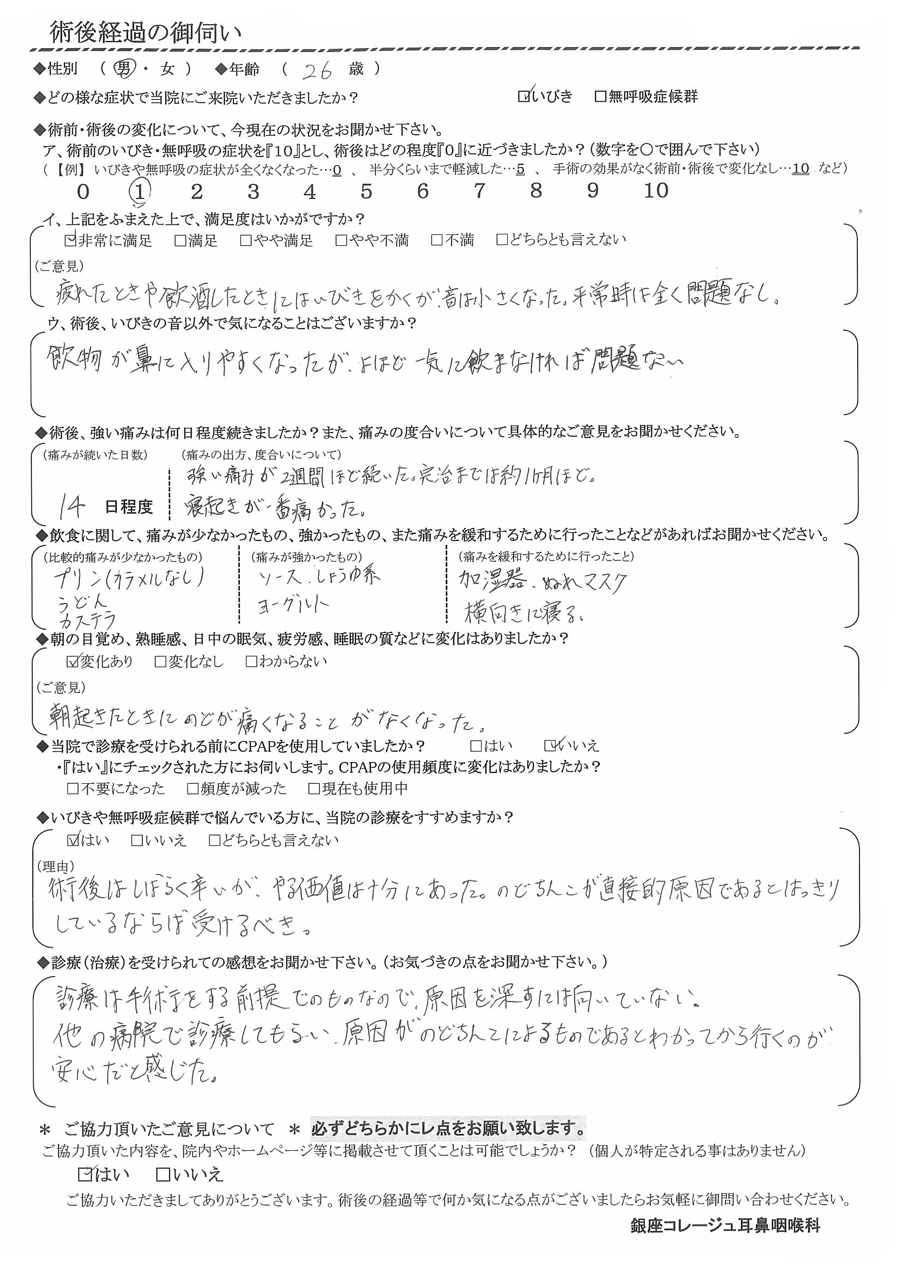 術後経過の御伺い
◆性別 （ 男 ・ 女 ） ◆年齢 （ 26 歳 ）
◆どの様な症状で当院にご来院いただきましたか？ ☑いびき □無呼吸症候群
◆術前・術後の変化について、今現在の状況をお聞かせ下さい。
ア、術前のいびき・無呼吸の症状を『10』とし、術後はどの程度『0』に近づきましたか？（数字を○で囲んで下さい）
（ 【例】 いびきや無呼吸の症状が全くなくなった…0 、 半分くらいまで軽減した…5 、 手術の効果がなく術前・術後で変化なし…10 など）
0 1 2 3 4 5 6 7 8 9 10
イ、上記をふまえた上で、満足度はいかがですか？
☑非常に満足 □満足 □やや満足 □やや不満 □不満 □どちらとも言えない
（ご意見）
疲れたときや飲酒したときにはいびきをかくが、音は小さくなった。平常時は全く問題なし。
ウ、術後、いびきの音以外で気になることはございますか？
飲物が鼻に入りやすくなったが、よほど一気に飲まなければ問題ない
◆術後、強い痛みは何日程度続きましたか？また、痛みの度合いについて具体的なご意見をお聞かせください。
（痛みが続いた日数） （痛みの出方、度合いについて）
強い痛みが2週間ほど続いた。完治までは約1ヶ月ほど。
14 日程度 寝起きが一番痛かった。
◆飲食に関して、痛みが少なかったもの、強かったもの、また痛みを緩和するために行ったことなどがあればお聞かせください。
（比較的痛みが少なかったもの） （痛みが強かったもの） （痛みを緩和するために行ったこと）
プリン（カラメルなし） ソース、しょうゆ系 加湿器、ぬれマスク
うどん ヨーグルト 横向きに寝る。
カステラ
◆朝の目覚め、熟睡感、日中の眠気、疲労感、睡眠の質などに変化はありましたか？
☑変化あり □変化なし □わからない
（ご意見）
朝起きたときにのどが痛くなることがなくなった。
◆当院で診療を受けられる前にCPAPを使用していましたか？ □はい ☑いいえ
・『はい』にチェックされた方にお伺いします。CPAPの使用頻度に変化はありましたか？
□不要になった □頻度が減った □現在も使用中
◆いびきや無呼吸症候群で悩んでいる方に、当院の診療をすすめますか？
☑はい □いいえ □どちらとも言えない
（理由）
術後はしばらく辛いが、やる価値は十分にあった。のどちんこが直接的原因であるとはっきり
しているならば受けるべき。
◆診療（治療）を受けられての感想をお聞かせ下さい。（お気づきの点をお聞かせ下さい。）
診療は手術をする前提でのものなので、原因を深すには向いていない。
他の病院で診療してもらい、原因がのどちんこによるものであるとわかってから行くのが
安心だと感じた。
＊ ご協力頂いたご意見について ＊ 必ずどちらかにレ点をお願い致します。
ご協力頂いた内容を、院内やホームページ等に掲載させて頂くことは可能でしょうか？ （個人が特定される事はありません）
☑はい □いいえ
ご協力いただきましてありがとうございます。術後の経過等で何か気になる点がございましたらお気軽に御問い合わせください。
銀座コレージュ耳鼻咽喉科